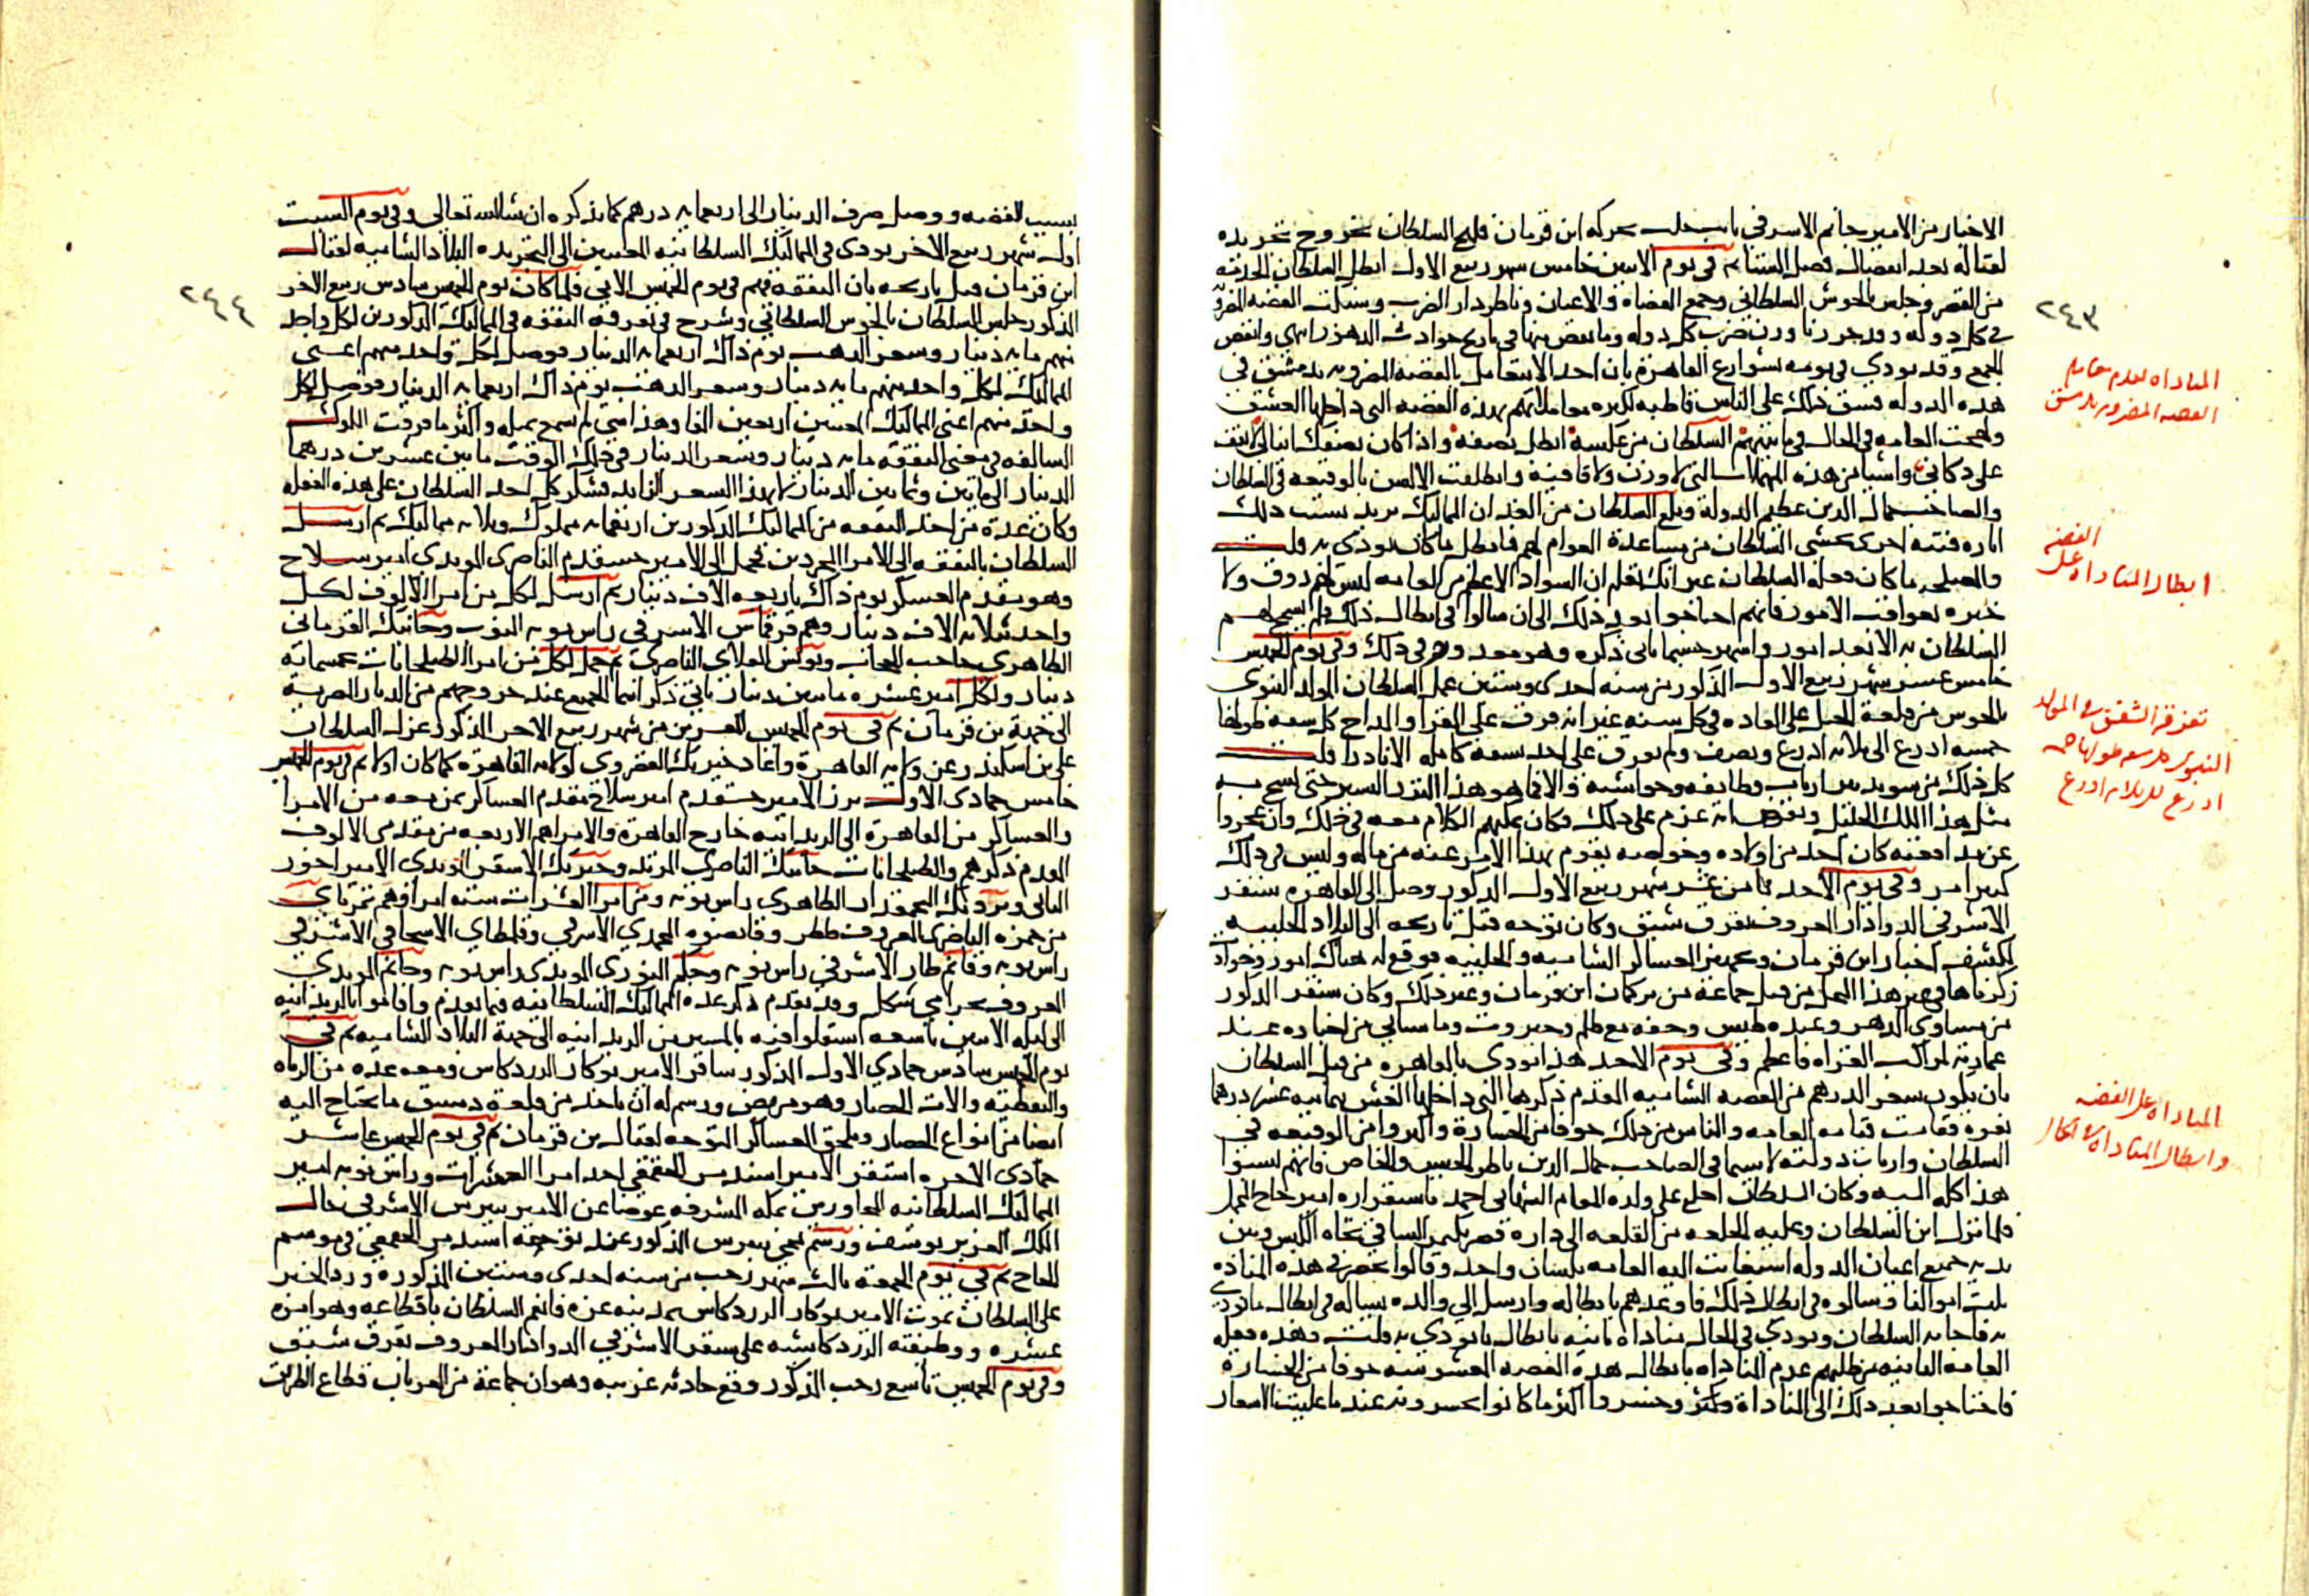 الاخبار من الامير جانم الاشرفي نايب حلب بحركه ابن قرمان فلهج السلطان بخروج تجريده
لقتاله بعد انفصال فصل الشتا ثم في يوم الاثنين خامس شهر ربيع الاول ابطل السلطان الخدمه
من القصر وجلس بالحوش السلطاني وجمع القضاه والاعيان وناظر دار الضرب وسبكت الفضه المضروبه
في كل دوله وقد حررنا وزن ضرب كل دوله وما نقص منها في تاريخ حوادث الدهور انتهى وانفض
الجمع وقد نودي في يومه بشوارع القاهرة بان احد لا يتعامل بالفضه المضروبه بدمشق في
هذه الدوله فشق ذلك على الناس قاطبه لكثره معاملاتهم بهذه الفضه التي داخلها الغش
ولهجت العامه في الحال فيما بينهم السلطان من عكسه ابطل نصفه واذا كان نصفك اينالي لا تقف
على دكاني واشيا من هذه المهملات التي لا وزن ولا قافيه وانطلقت الالسن بالوقيعه في السلطان
والصاحب جمال الدين عظيم الدولة وبلغ السلطان من الغد ان المماليك تريد بسبب ذلك
اثاره فتنه اخرى فخشي السلطان من مساعدة العوام لهم فابطل ما كان نودي به قلت
والمصلحه ما كان فعله السلطان غير انك تعلم ان السواد الاعظم من العامه ليس لهم ذوق ولا
خبره بعواقب الامور فانهم احتاجوا بعد ذلك الى ان سالوا في ابطال ذلك فلم يسمح لهم
السلطان به الا بعد امور واشهر حسبما ياتي ذكره وهو معذور في ذلك وفي يوم الخميس
خامس عشر شهر ربيع الاول المذكور من سنه احدى وستين عمل السلطان المولد النبوي
بالحوش من قلعة الجبل على العاده في كل سنه غير انه فرق على القرا والمداح كل شقه طولها
خمسه اذرع الى ثلاثه اذرع ونصف ولم يفرق على احد شقه كامله الا نادرا قلت
كل ذلك من سوء تدبير ارباب وظايفه وحواشيه والا فما هو هذا النزر اليسير حتى يشح به
مثل هذا الملك الجليل ونفرض انه عزم على ذلك فكان يمكنهم الكلام معه في ذلك وان عجزوا
عن مدافعته كان احد من اولاده وخواصه يقوم بهذا الامر عنه من ماله وليس في ذلك
كبير امر وفي يوم الاحد ثامن عشر شهر ربيع الاول المذكور وصل الى القاهره سنقر
الاشرفي الدوادار المعروف بقرق شبق وكان توجه قبل تاريخه الى البلاد الحلبيه
لكشف اخبار ابن قرمان وتجهيز العساكر الشاميه والحلبيه فوقع له هناك امور وحوادث
ذكرناها في غير هذا المحل من قبل جماعة من تركمان ابن قرمان وغير ذلك وكان سنقر المذكور
من مساوي الدهر وعنده طيش وخفه مع ظلم وجبروت وما سياتي من اخباره عند
عمارته لمراكب الغزاه فاعظم وفي يوم الاحد هذا نودي بالقاهره من قبل السلطان
بان يكون سعر الدرهم من الفضه الشاميه المقدم ذكرها التي داخلها الغش ثمانيه عشر درهما
نقره فقامت قيامه العامه والناس من ذلك خوفا من الخسارة واكثروا من الوقيعه في
السلطان وارباب دولته لا سيما في الصاحب جمال الدين ناظر الجيش والخاص فانهم نسبوا
هذا كله اليه وكان السلطان اخلع على ولده المقام الشهابي احمد باستقراره امير حاج المحمل
فلما نزل ابن السلطان وعليه الخلعه من القلعه الى داره قصر بكتمر الساقي تجاه الكبش وبين
يديه جميع اعيان الدوله استغاثت اليه العامه بلسان واحد وقالوا نحن في هذه المناداه
بثلث اموالنا وسالوه في ابطال ذلك فاوعدهم بابطاله وارسل الي والده يساله في ابطال ما نودي
به فاجابه السلطان ونودي في الحال مناداه ثانيه بابطال ما نودي به قلت وهذه فعله
العامه الثانيه من طلبهم عدم المناداه بابطال هذه الفضه المغشوشه خوفا من الخسارة
فاحتاجوا بعد ذلك الى المناداة وكثر وخسروا اكثر ما كانوا يخسرونه عند ما غليت الاسعار
٢٤٣
المناداه بعدم معامله
الفضه المضروبه بدمشق
الفضه
ابطال المناداه على
تفرقة الشقق في المولد
النبوي كل شقه طولها خمسه
اذرع الى ثلاثه اذرع
المناداه على الفضه
وابطال المناداه في الحال
بسبب الفضه ووصل صرف الدينار الى اربعمايه درهم كما نذكره ان شاالله تعالى وفي يوم السبت
اول شهر ربيع الاخر نودي في المماليك السلطانيه المعينين الى التجريده البلاد الشاميه لقتال
ابن قرمان قبل تاريخه بان النفقه فيهم في يوم الخميس الاتي فلما كان يوم الخميس سادس ربيع الاخر
المذكور جلس السلطان بالحوش السلطاني وشرع في تفرقه النفقه في المماليك المذكورين لكل واحد
منهم مايه دينار وسعر الذهب يوم ذاك اربعمايه الدينار فوصل لكل واحد منهم اعني
المماليك لكل واحد منهم مايه دينار وسعر الذهب يوم ذاك اربعمايه الدينار فوصل لكل
واحد منهم اعني المماليك المعينين اربعين الفا وهذا شي لم نسمع بمثله واكثر ما فرقت الملوك
السالفه في معنى النفقه مايه دينار وسعر الدينار في ذلك الوقت ما بين عشرين درهما
الدينار الى مايتين وثمانين الدينار لا بهذا السعر الزايد فشكر كل احد السلطان على هذه الفعله
وكان عدة من اخذ النفقه من المماليك المذكورين اربعمايه مملوك وثلاثه مماليك ثم ارسل
السلطان بالنفقه الى الامرا المجردين فحمل الى الامير خشقدم الناصري المويدي امير سلاح
وهو مقدم العسكر يوم ذاك باربعه الاف دينار ثم ارسل لكل من امرا الالوف لكل
واحد ثلاثه الاف دينار وهم قرقماس الاشرفي راس نوبه النوب وجانبك القرماني
الظاهري حاجب الحجاب ويونس العلاي الناصري ثم حمل لكل من امرا الطبلخانات خمسمايه
دينار ولكل امير عشره مايتين دينار ياتي ذكر اسما الجميع عند خروجهم من الديار المصريه
الى جهة بن قرمان ثم في يوم الخميس العشرين من شهر ربيع الاخر المذكور عزل السلطان
علي بن اسكندر عن ولايه القاهرة واعاد خير بك القصروي لولايه القاهره كما كان اولا ثم في يوم الخميس
خامس جمادى الاول برز الامير خشقدم امير سلاح مقدم العساكر بمن معه من الامرا
والعساكر من القاهرة الى الريدانيه خارج القاهرة والامراهم الاربعه من مقدمي الالوف
المقدم ذكرهم والطبلخانات جانبك الناصري المرتد وخيربك الاشقر المويدي الامير اخور
الثاني وبردبك البجمقدار الظاهري راس نوبه ومن امرا العشرات سته امرا وهم تمرباي
من حمزه الناصري المعروف بططر وقانصوه المحمدي الاشرفي وقلمطاي الاسحاقي الاشرفي
راس نوبه وقانم طاز الاشرفي راس نوبه وجكم النوري المويدي راس نوبه وجانم المويدي
المعروف بحرامي شكل وقد تقدم ذكر عده المماليك السلطانيه فيما تقدم واقاموا بالريدانيه
الى ليله الاثنين تاسعه استقلوا فيه بالمسير من الريدانيه الى جهة البلاد الشاميه ثم في
يوم الخميس سادس جمادي الاول المذكور سافر الامير نوكار الزردكاش ومعه عده من الرماه
والنفطيه والات الحصار وهو مريض ورسم له ان ياخذ من قلعة دمشق ما يحتاج اليه
ايضا من انواع الحصار ويلحق العساكر المتوجه لقتال بن قرمان ثم في يوم الخميس عاشر
جمادى الاخره استقر الامير اسندمر الجقمقي احد امرا العشرات وراس نوبه امير
المماليك السلطانيه المجاورين بمكه المشرفه عوضا عن الامير بيبرس الاشرفي خال
الملك العزيز يوسف ورسم بمجي بيبرس المذكور عند توجه اسندمر الجقمقي في موسم
الحاج ثم في يوم الجمعه ثالث شهر رجب من سنه احدى وستين المذكوره ورد الخبر
على السلطان بموت الامير نوكار الزردكاش بمدينه غزه فانعم السلطان باقطاعه وهو امره
عشره ووظيفته الزردكاشيه على سنقر الاشرفي الدوادار المعروف بقرق شبق
وفي يوم الخميس تاسع رجب المذكور وقع حادثه غريبه وهو ان جماعة من العربان قطاع الطريق
٢٤٤